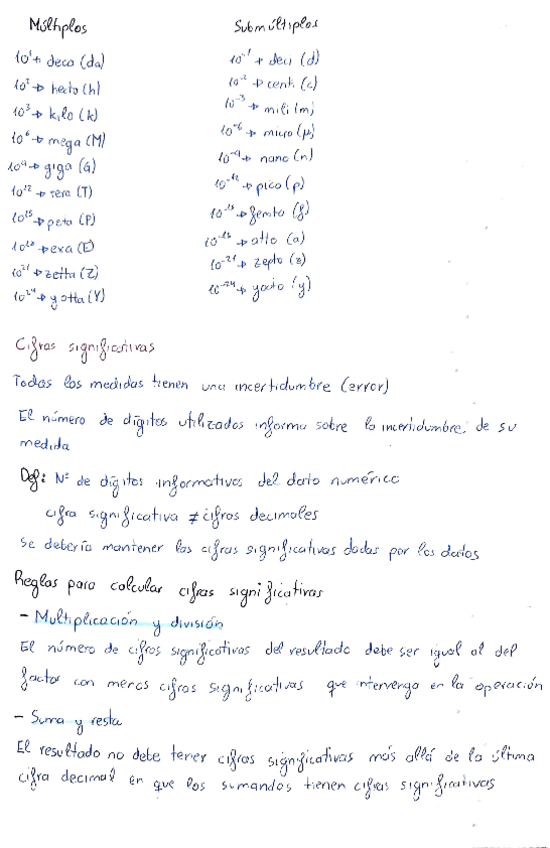 Múltiplos
10¹ → deca (da)
10² → hecto (h)
10³ → kilo (k)
10⁶ → mega (M)
10⁹ → giga (G)
10¹² → tera (T)
10¹⁵ → peta (P)
10¹⁸ → exa (E)
10²¹ → zetta (Z)
10²⁴ → yotta (Y)
Submúltiplos
10⁻¹ → deci (d)
10⁻² → centi (c)
10⁻³ → mili (m)
10⁻⁶ → micro (μ)
10⁻⁹ → nano (n)
10⁻¹² → pico (p)
10⁻¹⁵ → femto (f)
10⁻¹⁸ → atto (a)
10⁻²¹ → zepto (z)
10⁻²⁴ → yocto (y)
Cifras significativas
Todas las medidas tienen una incertidumbre (error)
El número de dígitos utilizados informa sobre la incertidumbre de su
medida
Def: Nº de dígitos informativos del dato numérico
cifra significativa ≠ cifras decimales
Se debería mantener las cifras significativas dadas por los datos
Reglas para calcular cifras significativas
- Multiplicación y división
El número de cifras significativas del resultado debe ser igual al del
factor con menos cifras significativas que intervenga en la operación
- Suma y resta
El resultado no debe tener cifras significativas más allá de la última
cifra decimal en que los sumandos tienen cifras significativas